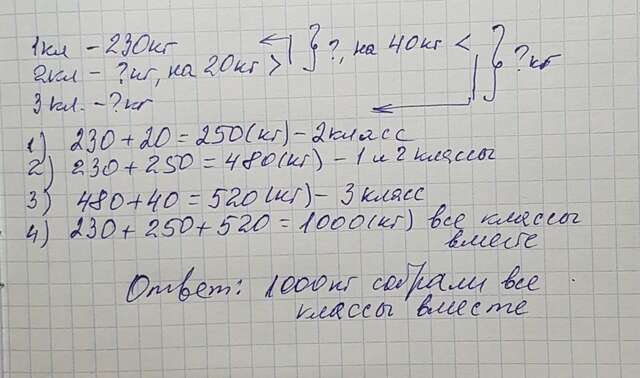 1кл - 230кг
2кл - ?кг, на 20кг > } ?, на 40кг < } ?кг
3кл. - ?кг
1) 230 + 20 = 250(кг) - 2класс
2) 230 + 250 = 480(кг) - 1 и 2 классы
3) 480 + 40 = 520(кг) - 3класс
4) 230 + 250 + 520 = 1000(кг) все классы
вместе
Ответ: 1000кг собрали все
классы вместе